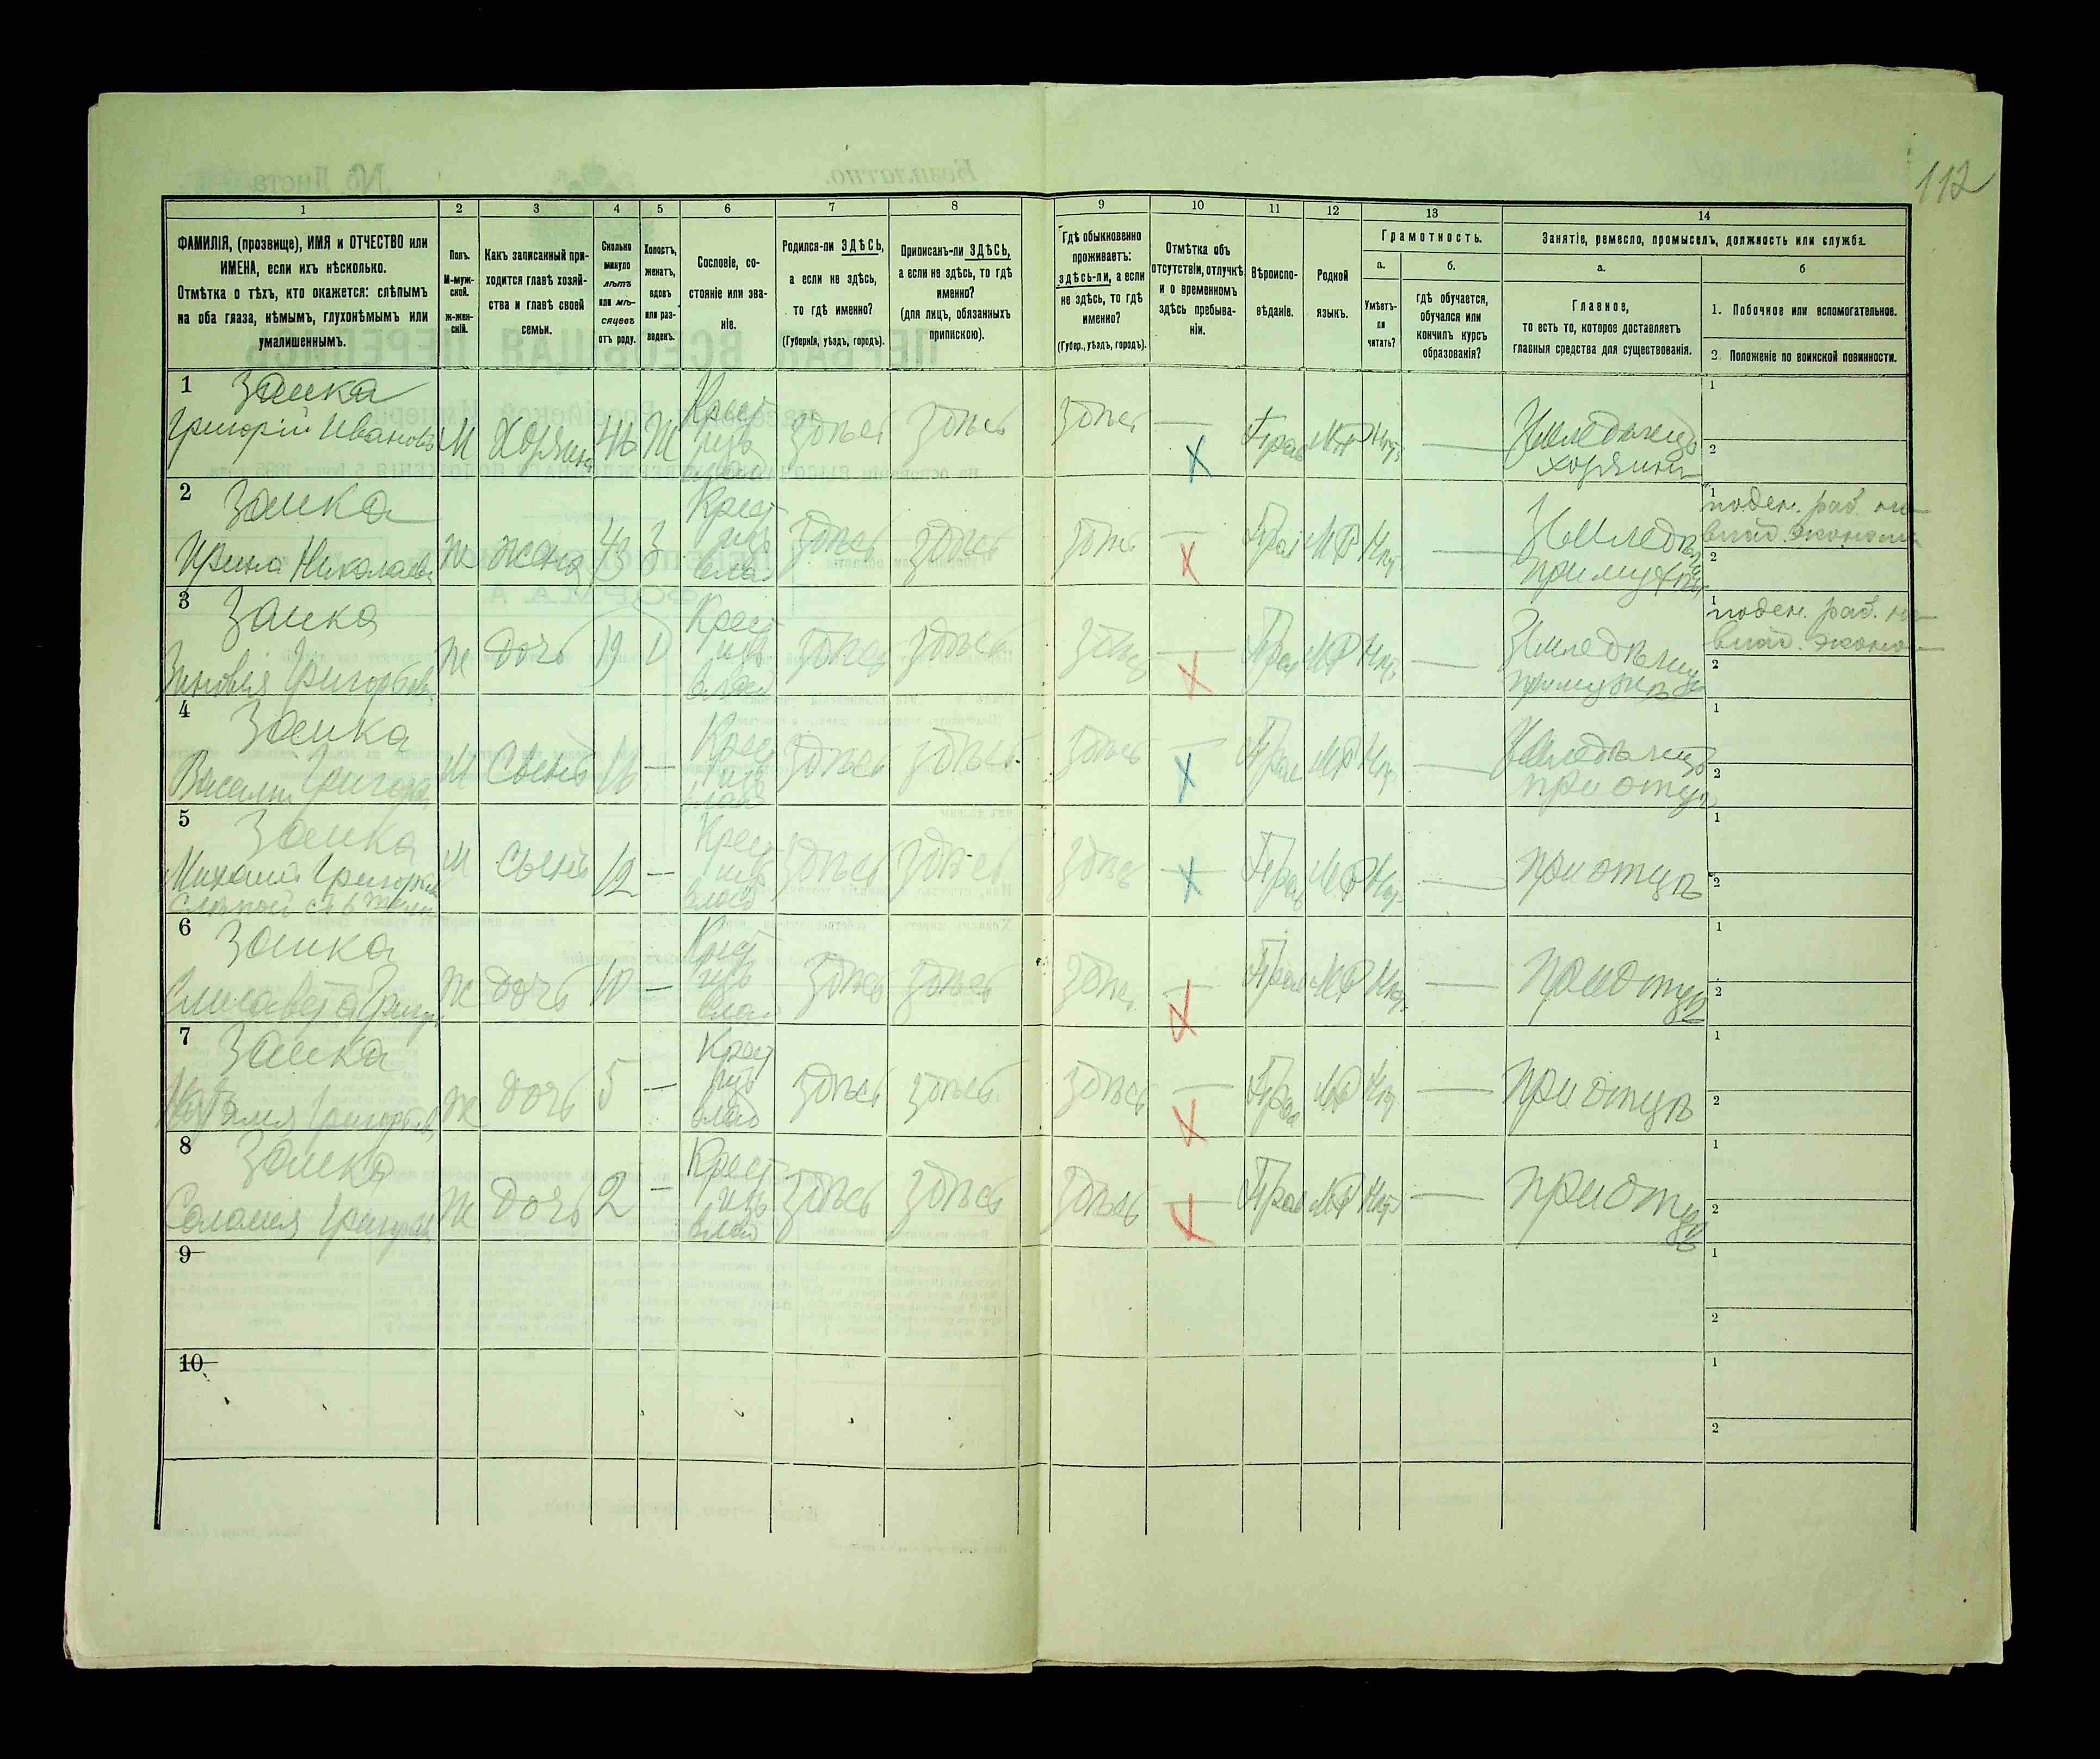 112
1 2 3 4 5 6 7 8 9 10 11 12 13 14
ФАМИЛІЯ, (прозвище), ИМЯ и ОТЧЕСТВО или
ИМЕНА, если ихъ нѣсколько.
Отмѣтка о тѣхъ, кто окажется: слѣпымъ
на оба глаза, нѣмымъ, глухонѣмымъ или
умалишеннымъ.
Полъ.
М-муж-
ской.
Ж-жен-
скій.
Какъ записанный при-
ходится главѣ хозяй-
ства и главѣ своей
семьи.
Сколько
минуло
лѣтъ
или мѣ-
сяцевъ
отъ роду.
Холостъ,
женатъ,
вдовъ
или раз-
веденъ.
Сословіе, со-
стояніе или зва-
ніе.
Родился-ли ЗДѢСЬ,
а если не здѣсь,
то гдѣ именно?
(Губернія, уѣздъ, городъ).
Приписанъ-ли ЗДѢСЬ,
а если не здѣсь, то гдѣ
именно?
(для лицъ, обязанныхъ
припискою).
Гдѣ обыкновенно
проживаетъ:
здѣсь-ли, а если
не здѣсь, то гдѣ
именно?
(Губер., уѣздъ, городъ).
Отмѣтка объ
отсутствіи, отлучкѣ
и о временномъ
здѣсь пребыва-
ніи.
Вѣроиспо-
вѣданіе.
Родной
языкъ.
Грамотность.
а.
Умѣетъ-
ли
читать?
б.
гдѣ обучается,
обучался или
кончилъ курсъ
образованія?
Занятіе, ремесло, промыселъ, должность или служба.
а.
Главное,
то есть то, которое доставляетъ
главныя средства для существованія.
б
1. Побочное или вспомогательное.
2. Положеніе по воинской повинности.
1 Заика
Григорій Ивановъ М Хозяинъ 46 Ж Крест изъ влад здѣсь здѣсь здѣсь — Прав МР Нѣтъ — Земледѣлецъ
хозяинъ
1
2
2 Заика
Ирина Николаев Ж жена 43 З Крест изъ влад здѣсь здѣсь здѣсь — Прав МР Нѣтъ — Земледѣлецъ
при мужѣ
1 поден. раб. на
влад. эконом
2
3 Заика
Зиновія Григорьев Ж Дочь 19 Д Крест изъ влад здѣсь здѣсь здѣсь — Прав МР Нѣтъ — Земледѣлецъ
1 поден. раб. на
влад. эконо
2
4 Заика
Василій Григорьев М Сынъ 16 — Крест изъ влад здѣсь здѣсь здѣсь — Прав МР Нѣтъ — Земледѣлецъ
при отцѣ
1
2
5 Заика
Михаилъ Григорьев М Сынъ 12 — Крест изъ влад здѣсь здѣсь здѣсь — Прав МР Нѣтъ — при отцѣ
слѣпой съ 6
1
2
6 Заика
Елисавета Григор Ж Дочь 10 — Крест изъ влад здѣсь здѣсь здѣсь — Прав МР Нѣтъ — при отцѣ
1
2
7 Заика
Григорьев Ж дочь 5 — Крест изъ влад здѣсь здѣсь здѣсь — Прав МР Нѣтъ — при отцѣ
1
2
8 Заика
Соломія Григорьев Ж Дочь 2 — Крест изъ влад здѣсь здѣсь здѣсь — Прав МР Нѣтъ — при отцѣ
1
2
9
1
2
10
1
2